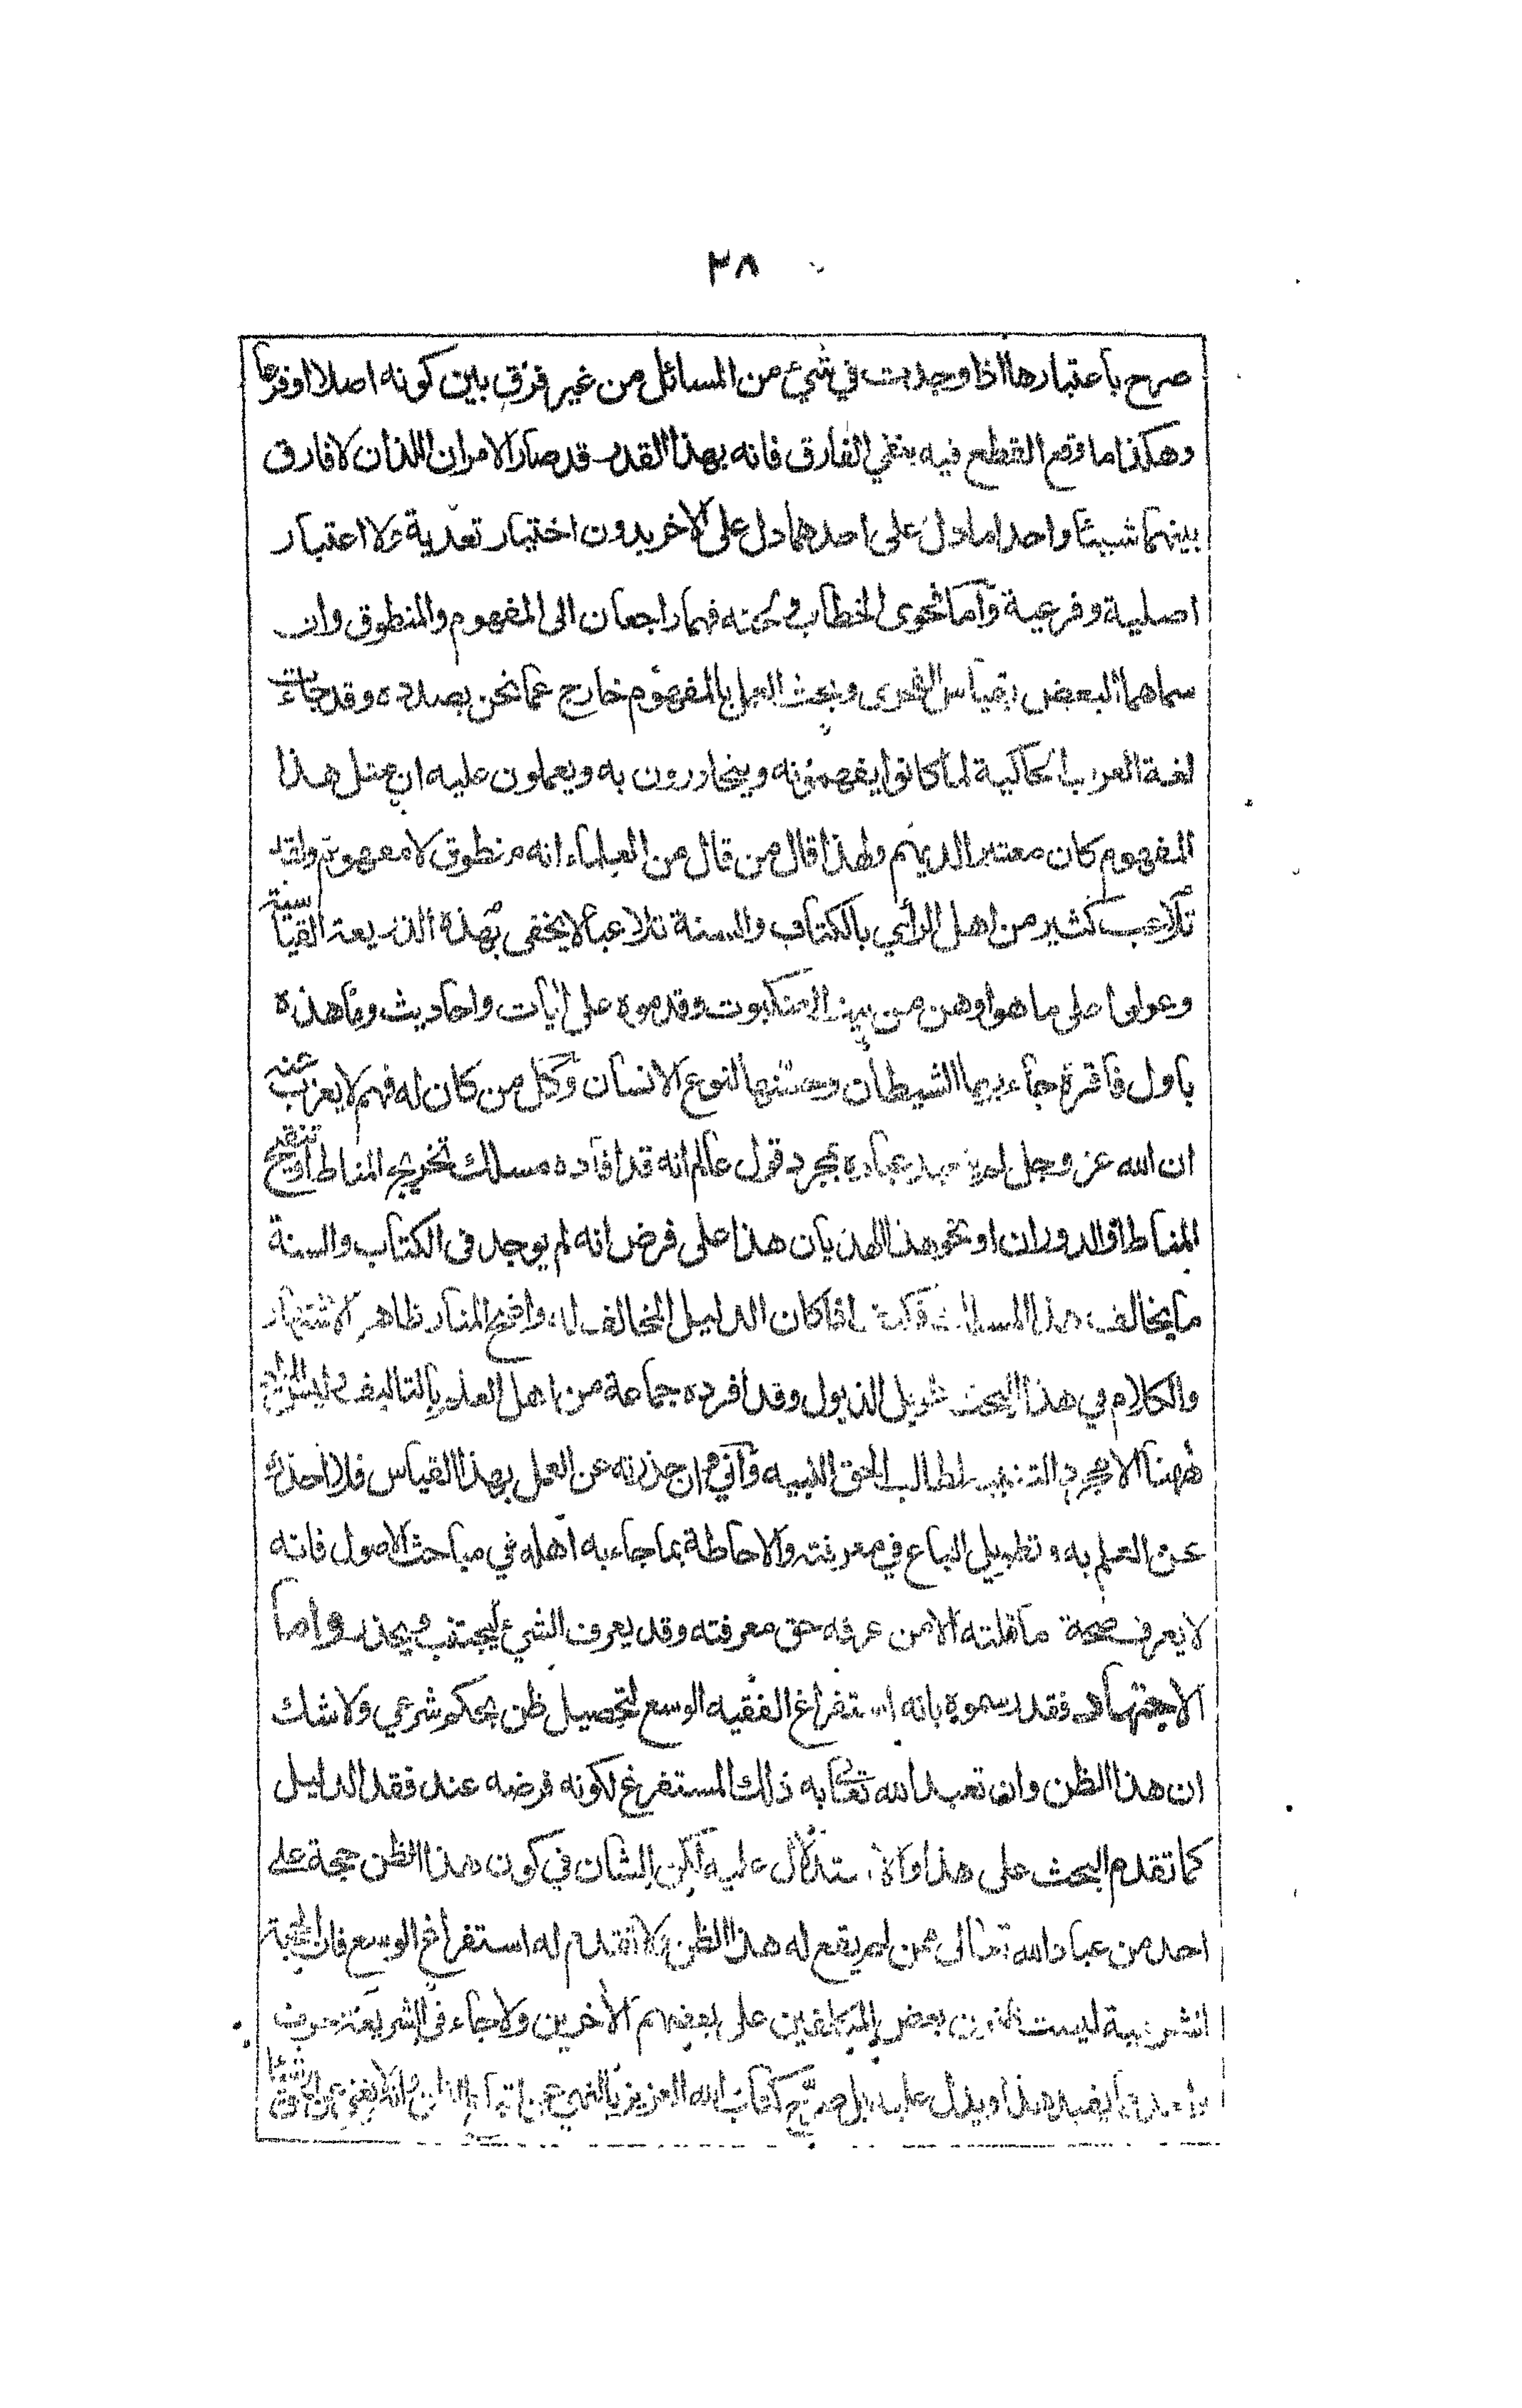 ٢٨
صرح باعتبارها اذا وجدت في شيء من المسائل من غير فرق بين كونه اصلا او فرعا
وهكذا ما وقع القطع فيه بنفي الفارق فانه بهذا القدر قد صار الامران اللذان لا فارق
بينهما شيئا واحدا ما دل على احدهما دل على الاخر بدون اختيار تعدية ولا اعتبار
اصلية وفرعية واما فحوى الخطاب ولحنه فهما راجعان الى المفهوم والمنطوق وان
سماهما البعض بقياس الفحوى وبحث العمل بالمفهوم خارج عما نحن بصدده وقد جاءت
لغة العرب الحاكية لما كانوا يفهمونه ويتحاورون به ويعملون عليه ان مثل هذا
المفهوم كان معتبرا لديهم ولهذا قال من قال من العلماء انه منطوق لا مفهوم ولقد
تلاعب كثير من اهل الرأي بالكتاب والسنة تلاعبا لا يخفى بهذه الذريعة القياسية
وعولوا على ما هو اوهن من بيت العنكبوت وقدموه على ايات واحاديث وما هذه
باول فاقرة جاء بها الشيطان وحسنها لنوع الانسان وكل من كان له فهم لا يعزب عنه
ان الله عز وجل لم يتعبد عباده بمجرد قول عالم انه قد افاده مسلك تخريج المناط او تنقيح
المناط او الدوران او نحو هذا الهذيان هذا على فرض انه لم يوجد في الكتاب والسنة
ما يخالف هذا المسلك فكيف اذا كان الدليل المخالف له واضح المنار ظاهر الاشتهار
والكلام في هذا البحث طويل الذيول وقد افرده جماعة من اهل العلم بالتاليف وليس المراد
ههنا الا مجرد التنبيه لطالب الحق النبيه واني وان حذرته عن العمل بهذا القياس فلا احذره
عن العلم به وتطويل الباع في معرفته والاحاطة بما جاء به اهله في مباحث الاصول فانه
لا يعرف صحة ما قلته الا من عرفه حق معرفته وقد يعرف الشيء ليجتنب ويحذر واما
الاجتهاد فقد رسموه بانه استفراغ الفقيه الوسع لتحصيل ظن بحكم شرعي ولا شك
ان هذا الظن وان تعبد الله تعالى به ذلك المستفرغ لكونه فرضه عند فقد الدليل
كما تقدم البحث على هذا والاستدلال عليه لكن الشان في كون هذا الظن حجة على
احد من عباد الله تعالى ممن لم يقع له هذا الظن ولا تقدم له استفراغ الوسع فان الحجة
الشرعية ليست ظنون بعض المكلفين على بعضهم الاخرين ولا جاء في الشريعة حرف
يفيد هذا ويدل عليه بل صرح كتاب الله العزيز بالنهي عن اتباع الظن وانه لا يغني من الحق شيئا